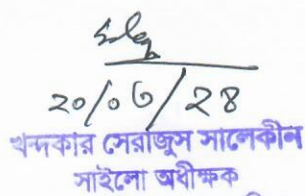 ২০/০৩/২৪
খন্দকার সেরাজুস সালেকীন
সাইলো অধীক্ষক